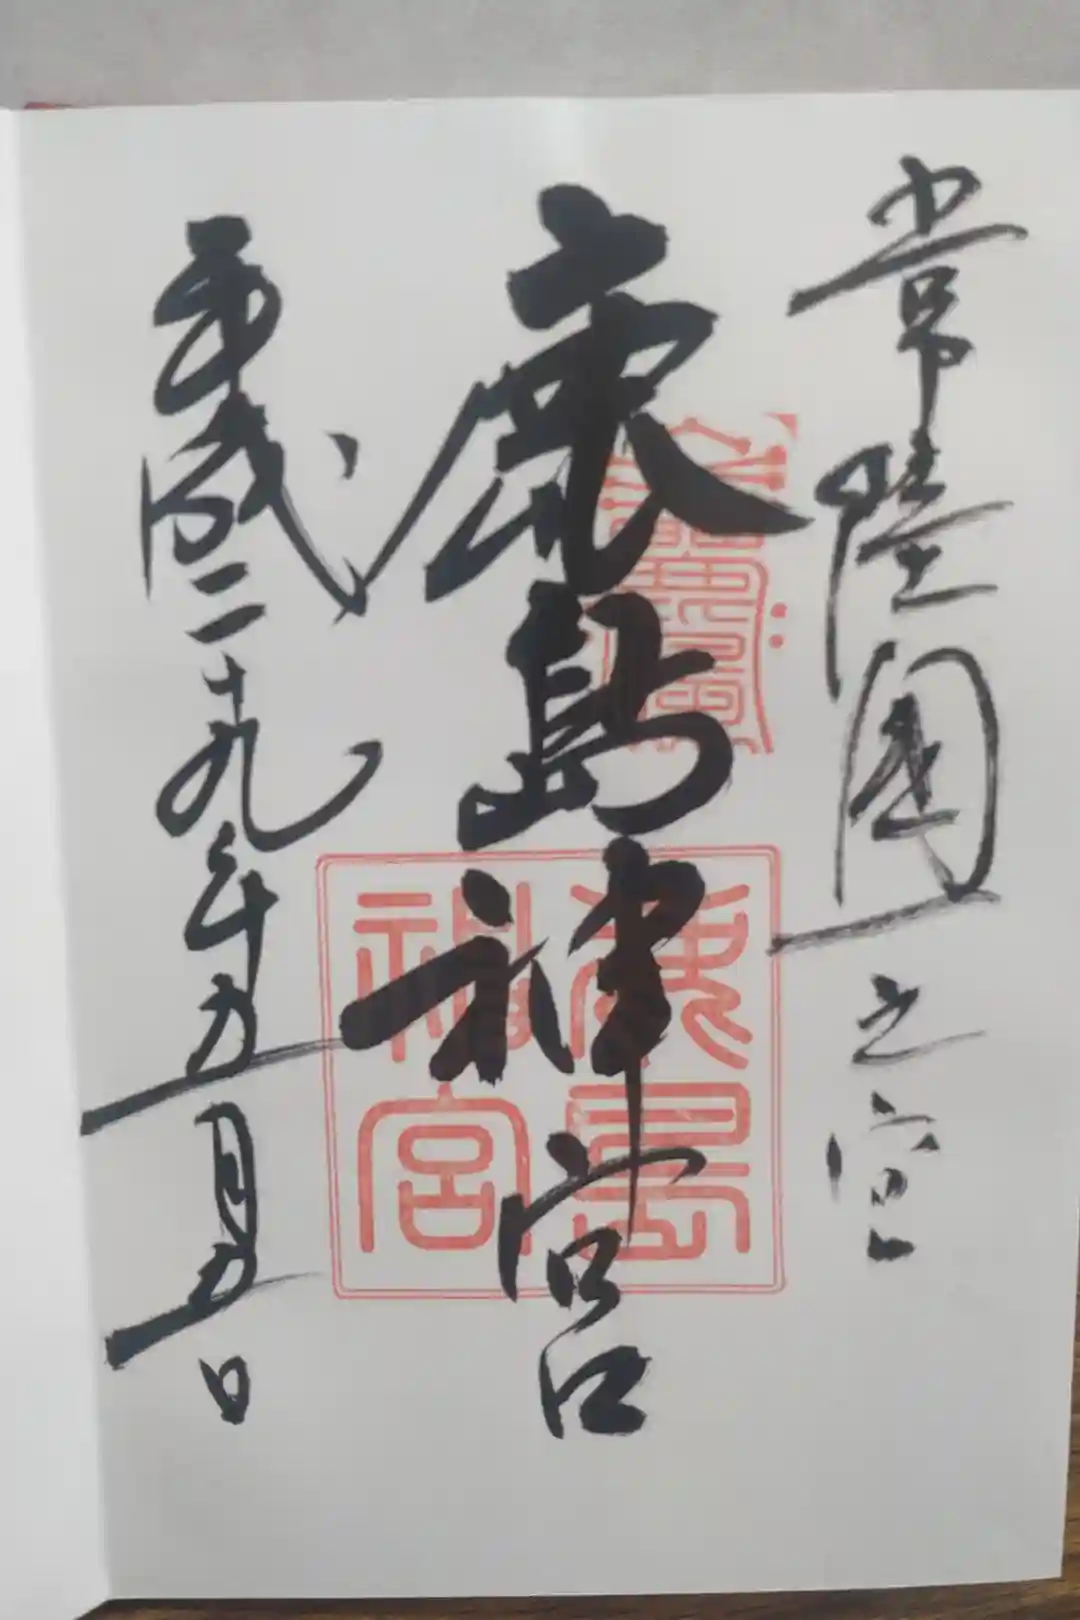 常陸國一之宮
鹿島神宮
平成二十九年五月五日
鹿島
神宮